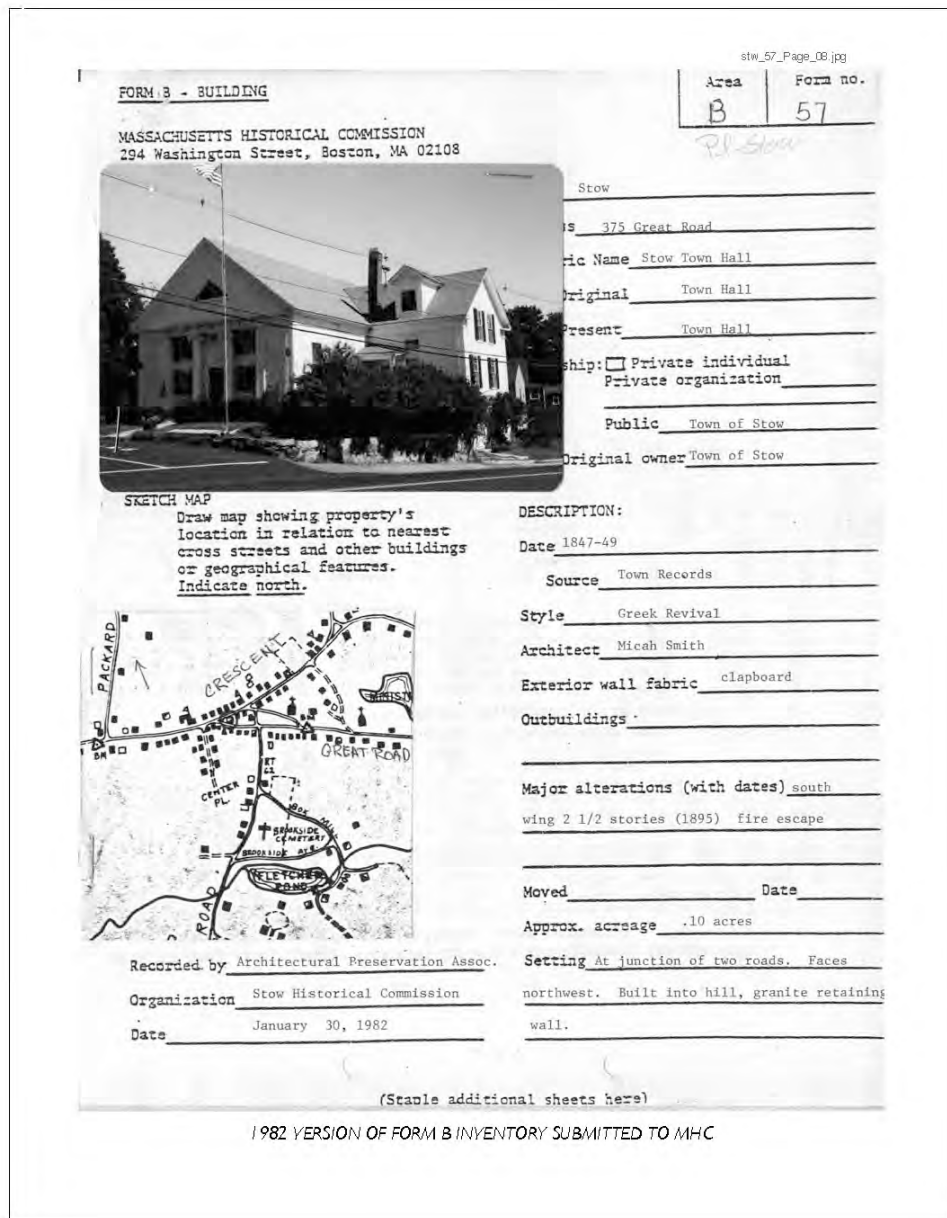 stw_57_Page_08.jpg
FORM B - BUILDING
Area
Form no.
B
57
MASSACHUSETTS HISTORICAL COMMISSION
294 Washington Street, Boston, MA 02108
Stow
375 Great Road
ric Name Stow Town Hall
Original Town Hall
Present Town Hall
ship: Private individual
Private organization
Public Town of Stow
Original owner Town of Stow
SKETCH MAP
Draw map showing property's
location in relation to nearest
cross streets and other buildings
or geographical features.
Indicate north.
PACKARD
CRESCENT
GREAT ROAD
RT
62
CENTER
PL.
BOX MILL
BROOKSIDE
CEMETERY
BROOKSIDE AVE.
FLETCHER
POND
ROAD
BM
DESCRIPTION:
Date 1847-49
Source Town Records
Style Greek Revival
Architect Micah Smith
Exterior wall fabric clapboard
Outbuildings
Major alterations (with dates) south
wing 2 1/2 stories (1895) fire escape
Moved Date
Approx. acreage .10 acres
Setting At junction of two roads. Faces
northwest. Built into hill, granite retaining
wall.
Recorded by Architectural Preservation Assoc.
Organization Stow Historical Commission
Date January 30, 1982
(Staple additional sheets here)
1982 VERSION OF FORM B INVENTORY SUBMITTED TO MHC